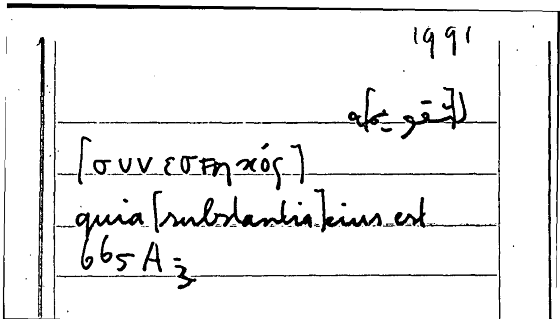 1991
[συνεστηκός]
quia [substantia] eius est
665 A 3